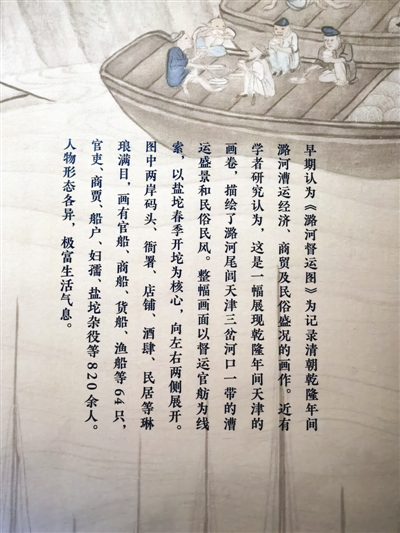 早期认为《潞河督运图》为记录清朝乾隆年间
潞河漕运经济、商贸及民俗盛况的画作。近有
学者研究认为，这是一幅展现乾隆年间天津的
画卷，描绘了潞河尾闾天津三岔河口一带的漕
运盛景和民俗民风。整幅画面以督运官舫为线
索，以盐坨春季开坨为核心，向左右两侧展开。
图中两岸码头、衙署、店铺、酒肆、民居等琳
琅满目，画有官船、商船、货船、渔船等64只，
官吏、商贾、船户、妇孺、盐坨杂役等820余人。
人物形态各异，极富生活气息。